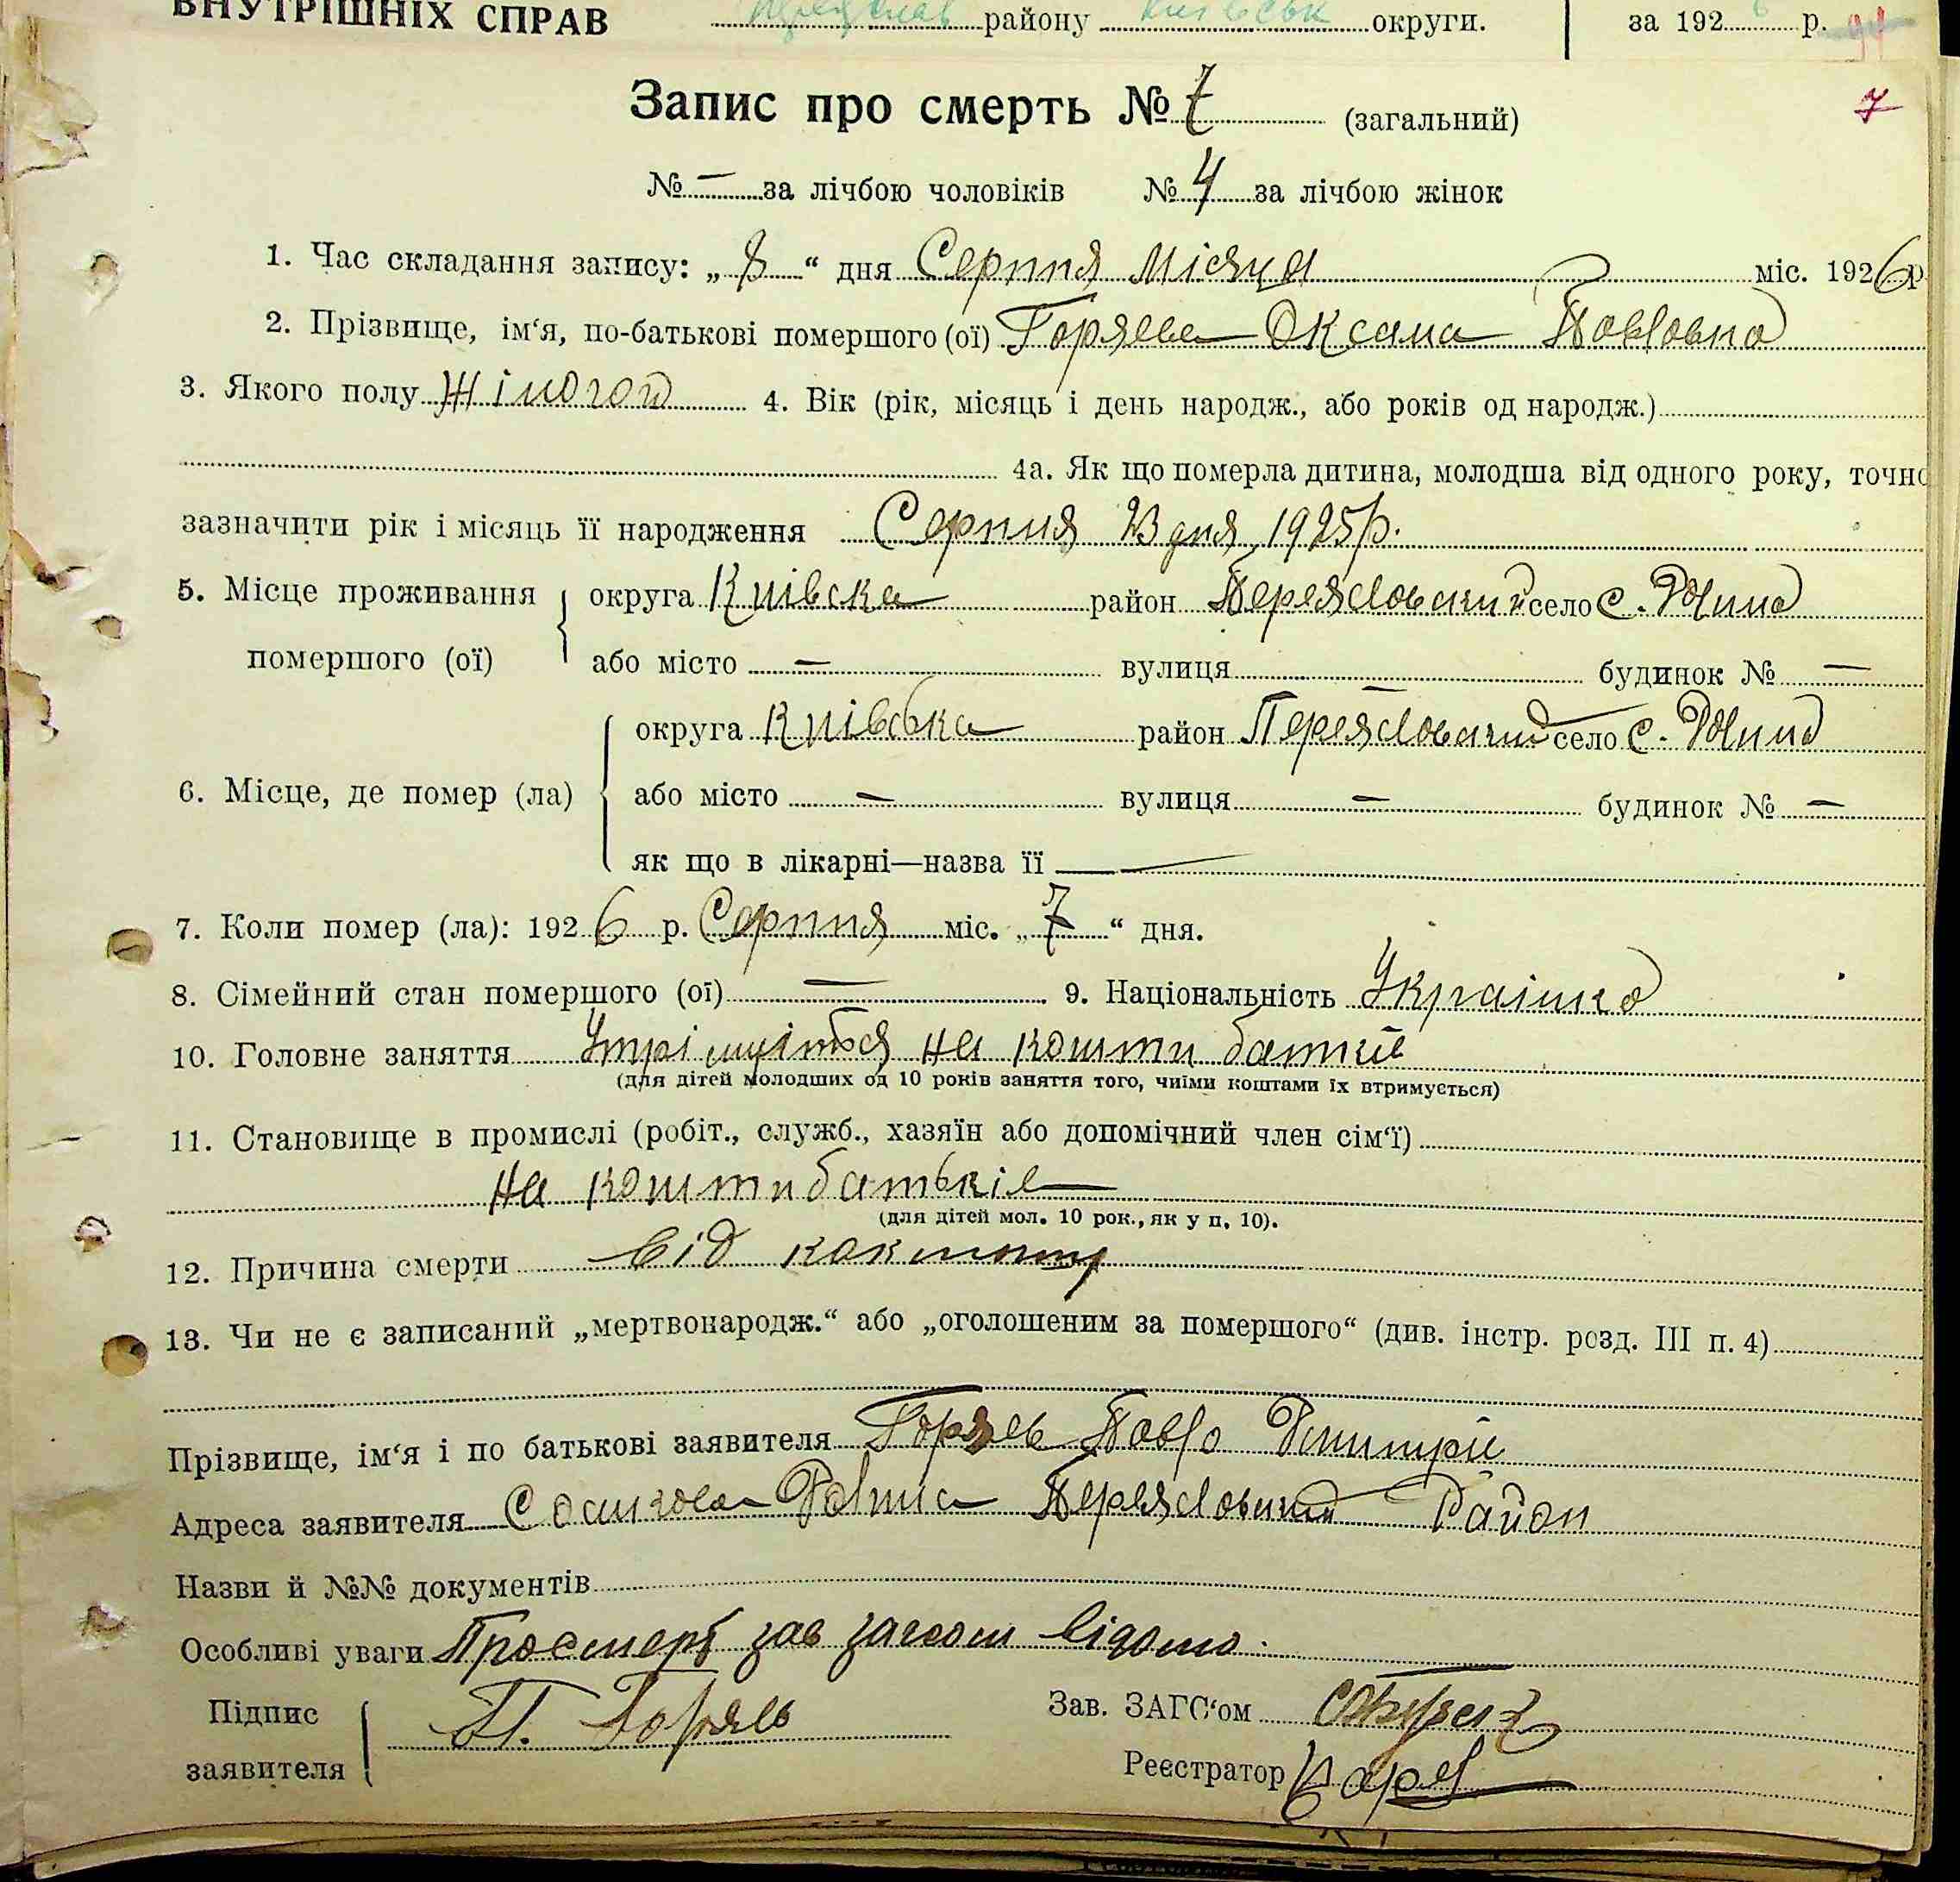 ВНУТРІШНІХ СПРАВ району округи. за 192 р.
Запис про смерть № 7 (загальний) 7
№ — за лічбою чоловіків № 4 за лічбою жінок
1. Час складання запису: „ 8 “ дня Серпня Місяця міс. 1926 р
2. Прізвище, ім‘я, по-батькові помершого (ої) Горяева Оксана Павловна
3. Якого полу Жіного 4. Вік (рік, місяць і день народж., або років од народж.)
4а. Як що померла дитина, молодша від одного року, точно
зазначити рік і місяць її народження Серпня 23 дня 1925 р.
5. Місце проживання округа Київска район село с.
помершого (ої) або місто — вулиця — будинок № —
округа Київська район село с.
6. Місце, де помер (ла) або місто — вулиця — будинок № —
як що в лікарні—назва її —
7. Коли помер (ла): 1926 р. Серпня міс. „ 7 “ дня.
8. Сімейний стан помершого (ої) — 9. Національність Українка
10. Головне заняття на кошти батків
(для дітей молодших од 10 років заняття того, чиїми коштами їх втримується)
11. Становище в промислі (робіт., служб., хазяїн або допомічний член сім‘ї)
на кошти батьків
(для дітей мол. 10 рок., як у п. 10).
12. Причина смерти від коклюшу
13. Чи не є записаний „мертвонародж.“ або „оголошеним за помершого“ (див. інстр. розд. III п. 4)
Прізвище, ім‘я і по батькові заявителя Павло
Адреса заявителя Район
Назви й №№ документів
Особливі уваги
Підпис П. Зав. ЗАГС‘ом
заявителя Реєстратор